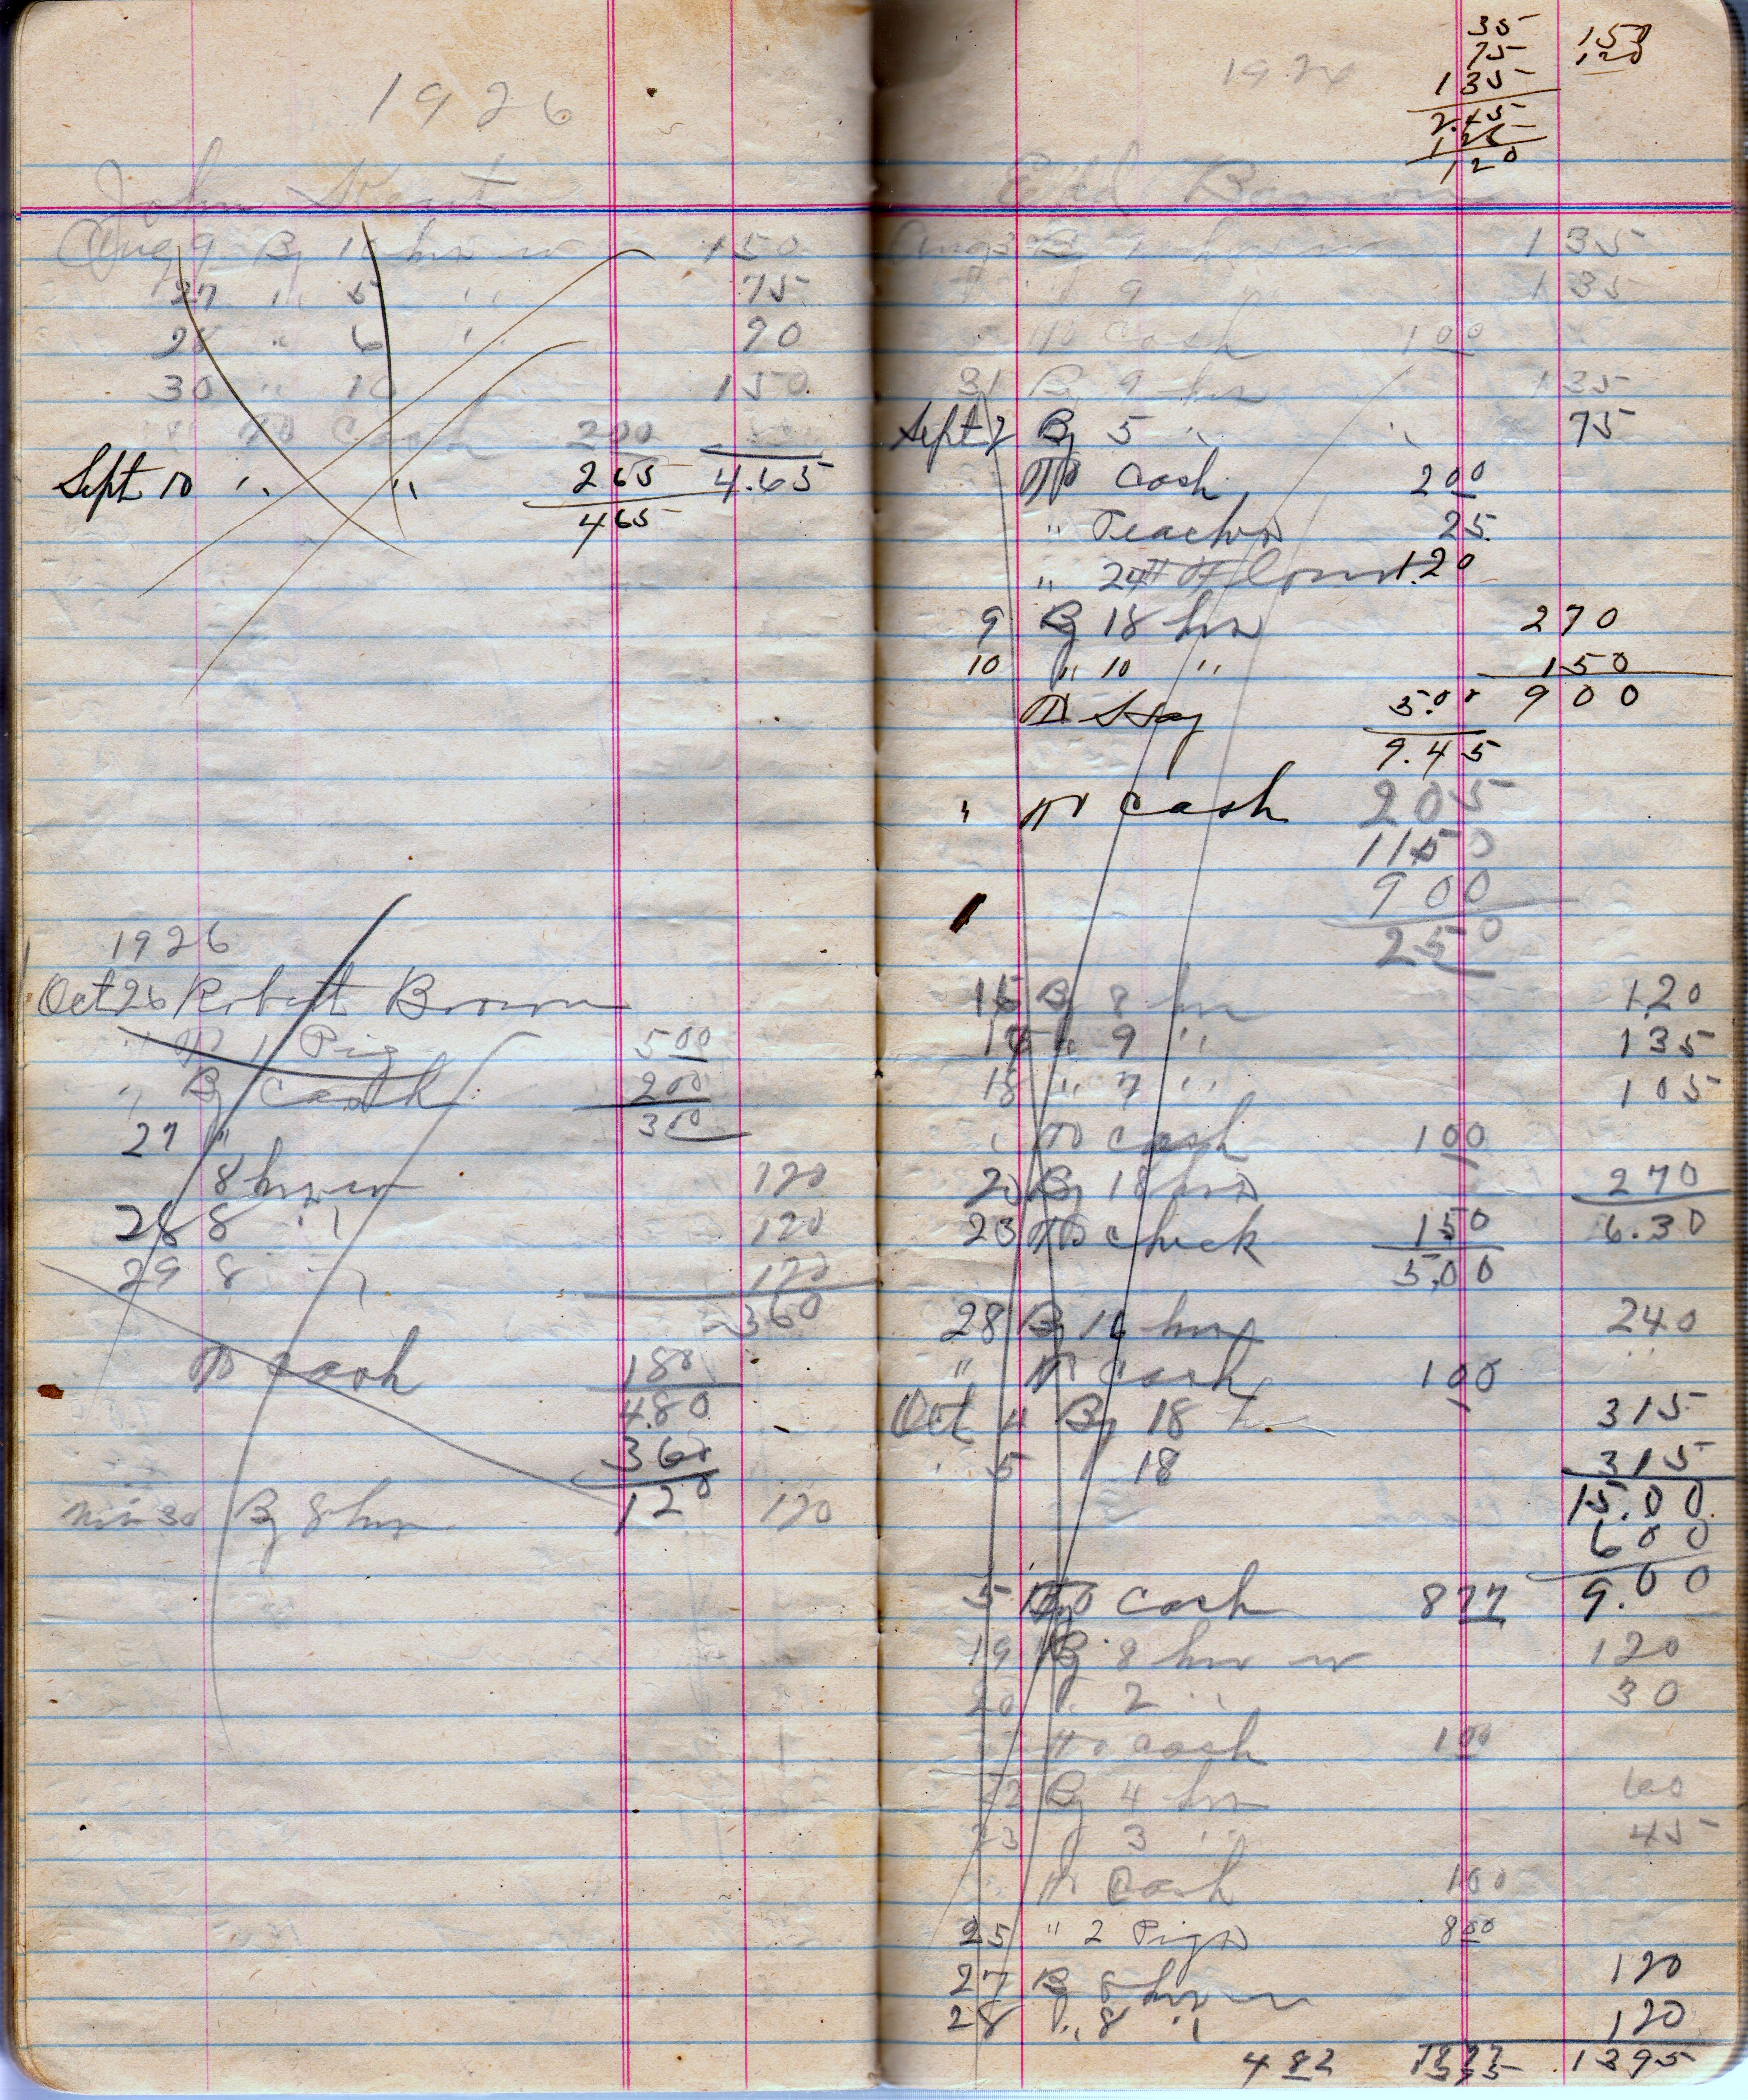 1926
John Kent
Aug 9 By 10 hrs w 150
27 " 5 " 75
28 " 6 " 90
30 " 10 150
" To Cash 200
Sept 10 " " 265 4.65
465
1926
Oct 26 Robert Brown
" To 1 Pig 500
" By Cash 200
27 " 300
8 hrs w 120
28 8 " 120
29 8 " 120
360
To Cash 180
480
360
120
30 By 8 hrs 120
35 150
75 120
135
2.45
1.25
120
1926
Edd Brown
Aug 3 By 9 hrs w 135
" 9 " 135
To Cash 100
31 By 9 hrs 135
Sept 2 By 5 " " 75
To Cash 200
" Peaches 25
" 24 # Flour 1.20
9 By 18 hrs 270
10 " 10 " 150
To Hay 5.00 900
9.45
" To Cash 205
1150
900
250
15 By 8 hrs 120
16 " 9 " 135
18 " 7 " 105
" To Cash 100
20 By 18 hrs 270
23 To Check 150 6.30
5.00
28 By 16 hrs 240
" To Cash 100
Oct 4 By 18 hrs 315
" 5 18 315
15.00
600
9.00
5 To Cash 877
19 By 8 hrs w 120
20 " 2 " 30
To Cash 100
22 By 4 hrs 60
23 3 " 45
To Cash 100
25 " 2 Pigs 800
27 By 8 hrs w 120
28 " 8 " 120
482 1395